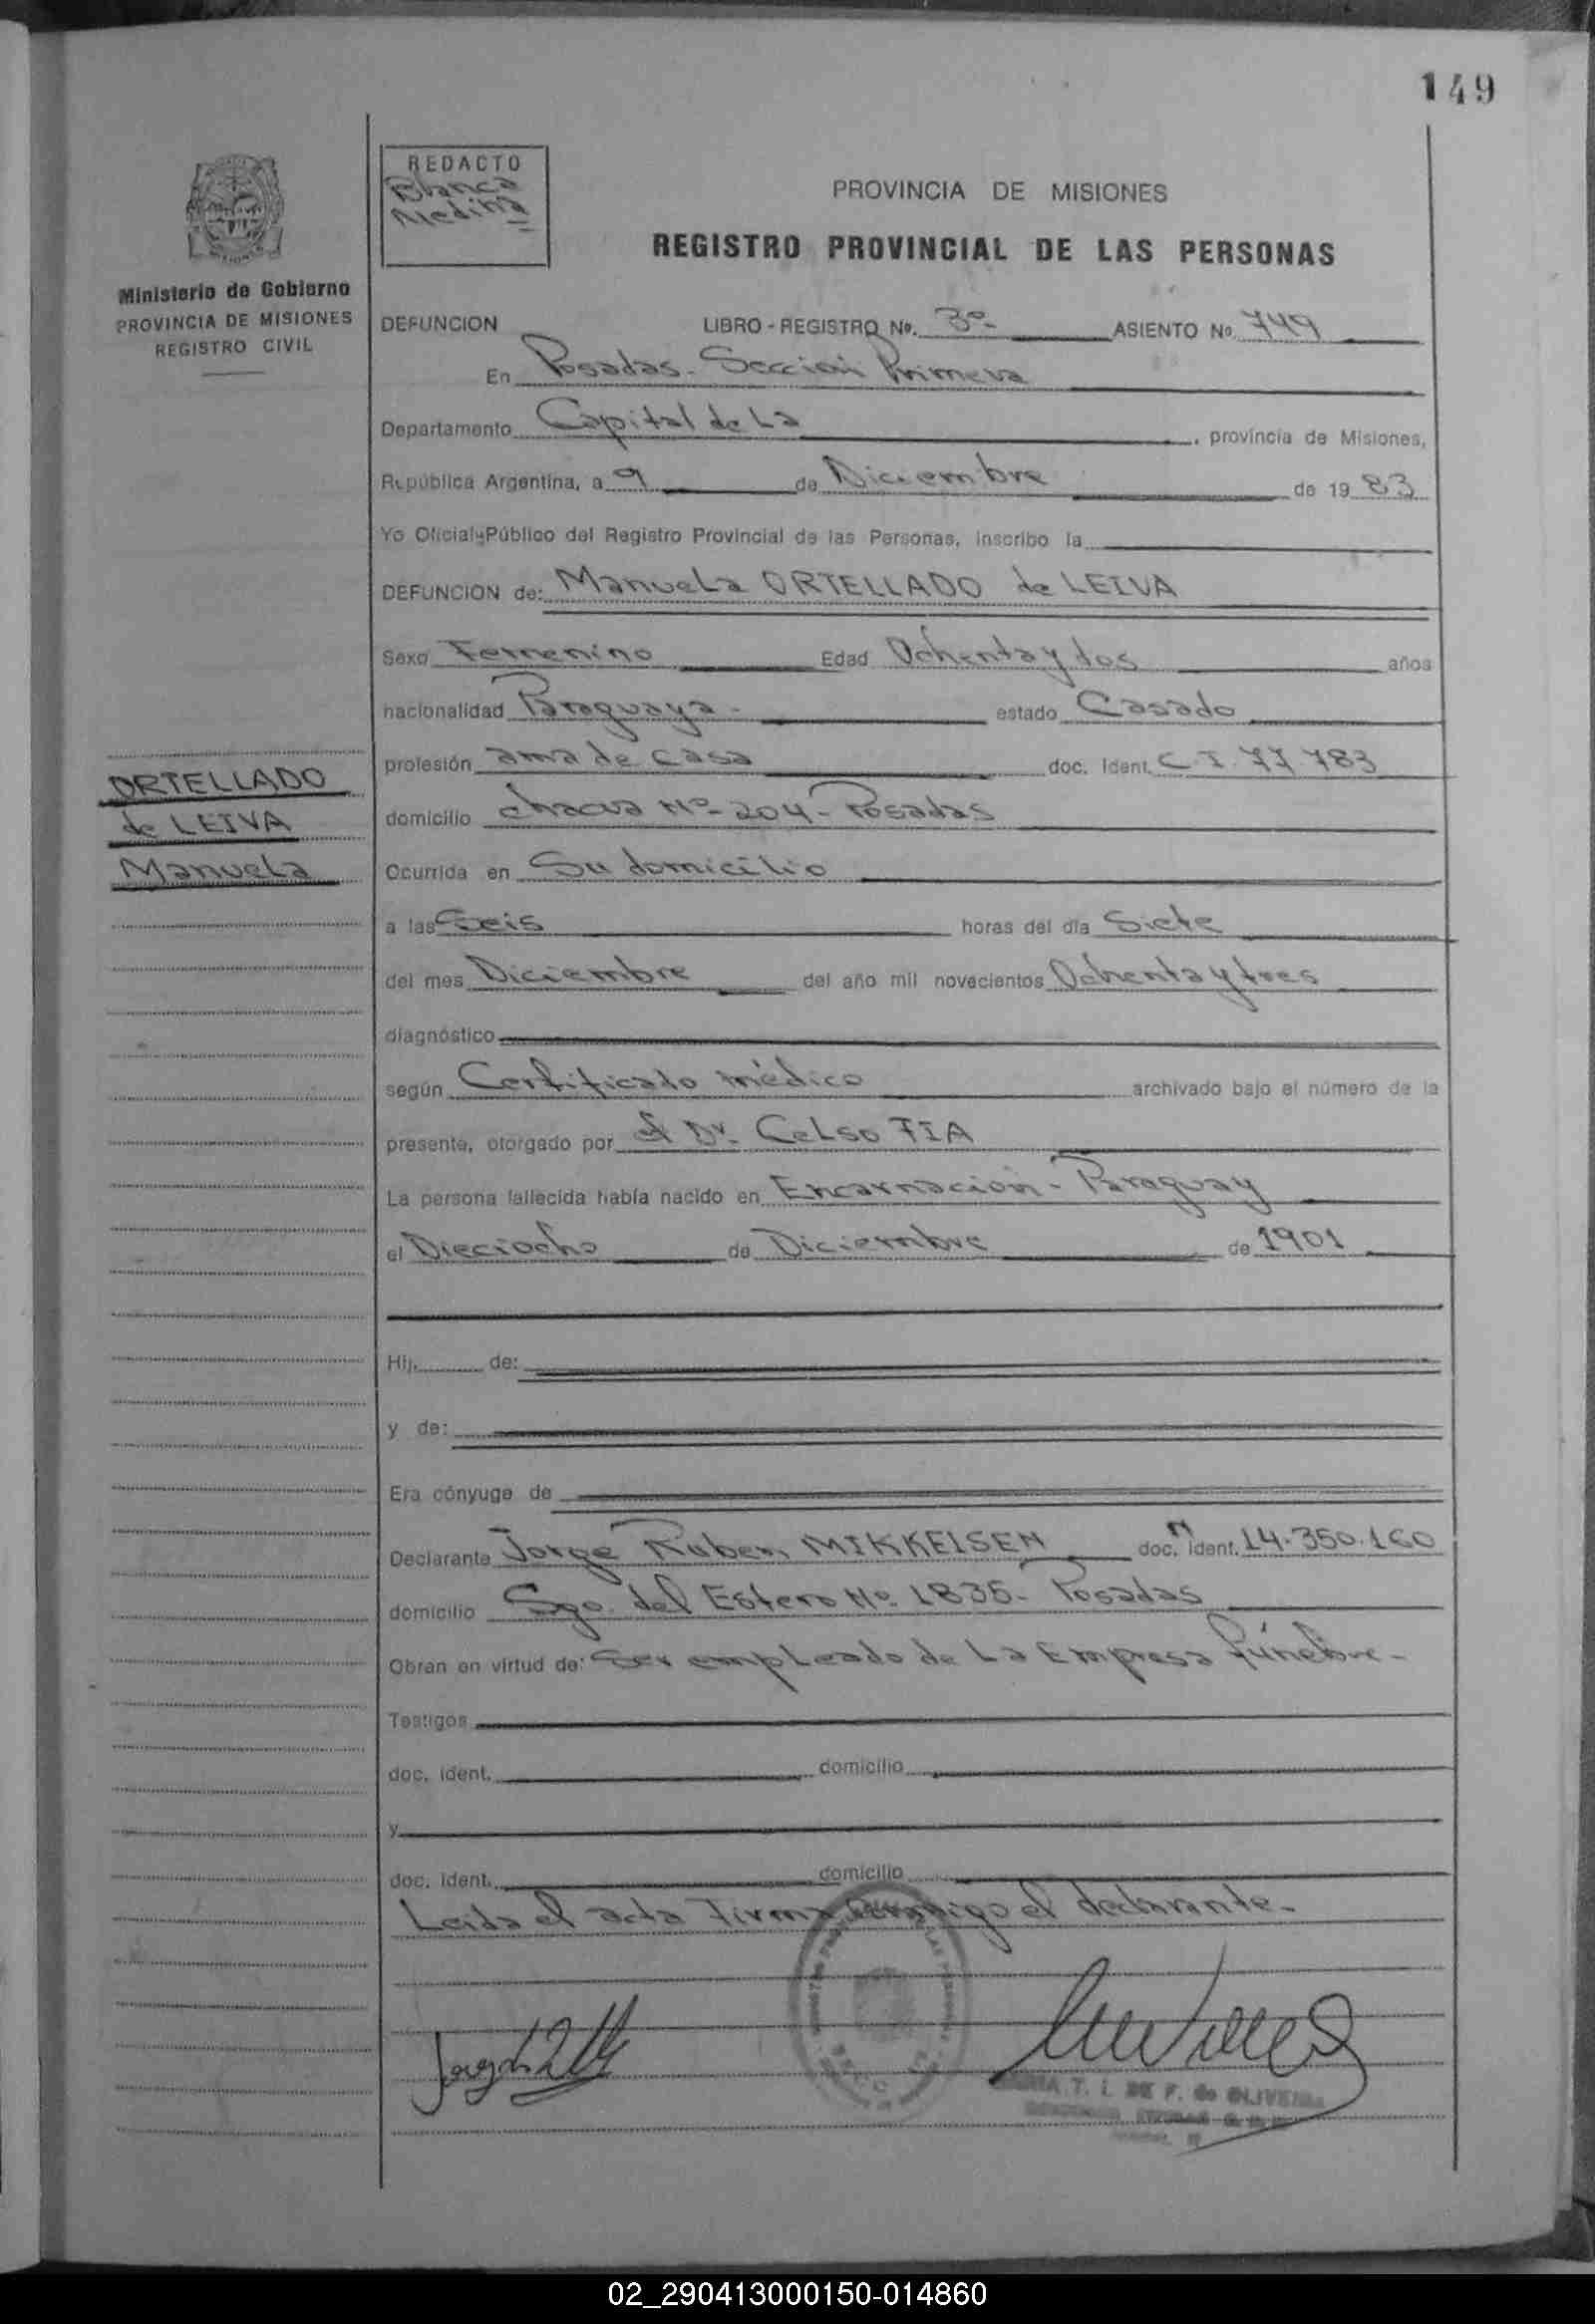 149
REDACTO
Blanca
Medina
PROVINCIA DE MISIONES
REGISTRO PROVINCIAL DE LAS PERSONAS
Ministerio de Gobierno
PROVINCIA DE MISIONES
REGISTRO CIVIL
DEFUNCION LIBRO - REGISTRO No. 3º- ASIENTO No. 749
En Posadas - Sección Primera
Departamento Capital de La, provincia de Misiones,
República Argentina, a 9 de Diciembre de 1983
Yo Oficial Público del Registro Provincial de las Personas, inscribo la
DEFUNCION de: Manuela ORTELLADO de LEIVA
Sexo Femenino Edad Ochenta y dos años
nacionalidad Paraguaya - estado Casado
profesión ama de casa doc. Ident. C.I. 77.783
ORTELLADO
de LEIVA
Manuela
domicilio chacra Nº- 204 - Posadas
Ocurrida en Su domicilio
a las Seis horas del día Siete
del mes Diciembre del año mil novecientos Ochenta y tres
diagnóstico
según Certificado médico archivado bajo el número de la
presente, otorgado por el Dr. Celso FIA
La persona fallecida había nacido en Encarnación - Paraguay
el Dieciocho de Diciembre de 1901
Hij. de:
y de:
Era cónyuge de
Declarante Jorge Ruben MIKKELSEN doc. ident. 14.350.160
domicilio Sgo. del Estero Nº 1835 - Posadas
Obran en virtud de: Ser empleado de La Empresa fúnebre -
Testigos
doc. ident. domicilio
y
doc. ident. domicilio
Leída el acta firma conmigo el declarante -
T. I. DE F. de OLIVEIRA
02_290413000150-014860